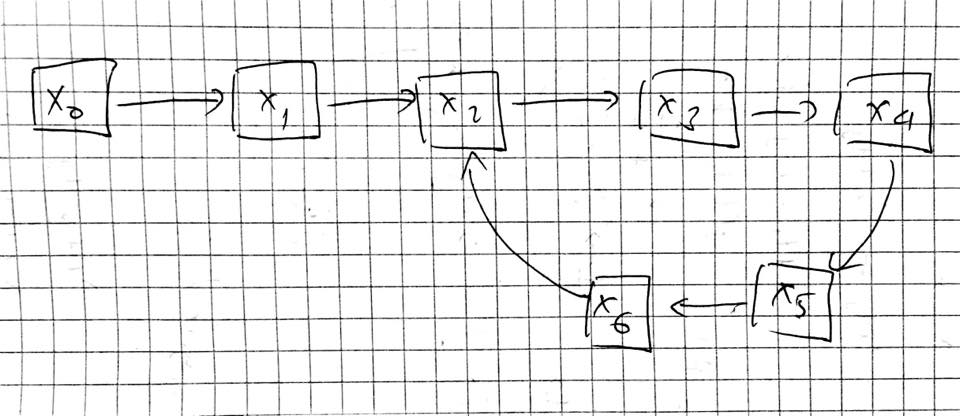 x₀ x₁ x₂ x₃ x₄
x₆ x₅